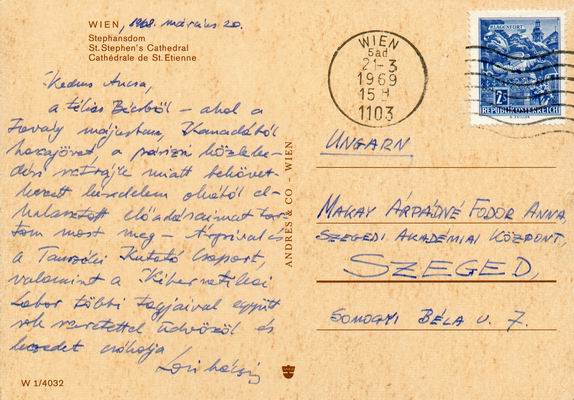 WIEN, 1968. március 20.
Stephansdom
St. Stephen's Cathedral
Cathédrale de St. Etienne
Kedves Ancsa,
a télies Bécsből – ahol a
tavaly májusban, Kanadából
hazajövet a párizsi közleke-
dési sztrájk miatt bekövet-
kezett késedelem okából el-
halasztott előadásaimat tar-
tom most meg – Árpival és
a Tanszéki Kutató Csoport,
valamint a Kibernetikai
Labor többi tagjaival együtt
sok szeretettel üdvözöl és
kezedet csókolja
Laci bácsi
W 1/4032
ANDRES & CO - WIEN
WIEN
5ad
21-3
1969
15 H
1103
KLAGENFURT
2S
REPUBLIK ÖSTERREICH
UNGARN
MAKAY ÁRPÁDNÉ FODOR ANNA
SZEGEDI AKADÉMIAI KÖZPONT,
SZEGED,
SOMOGYI BÉLA U. 7.